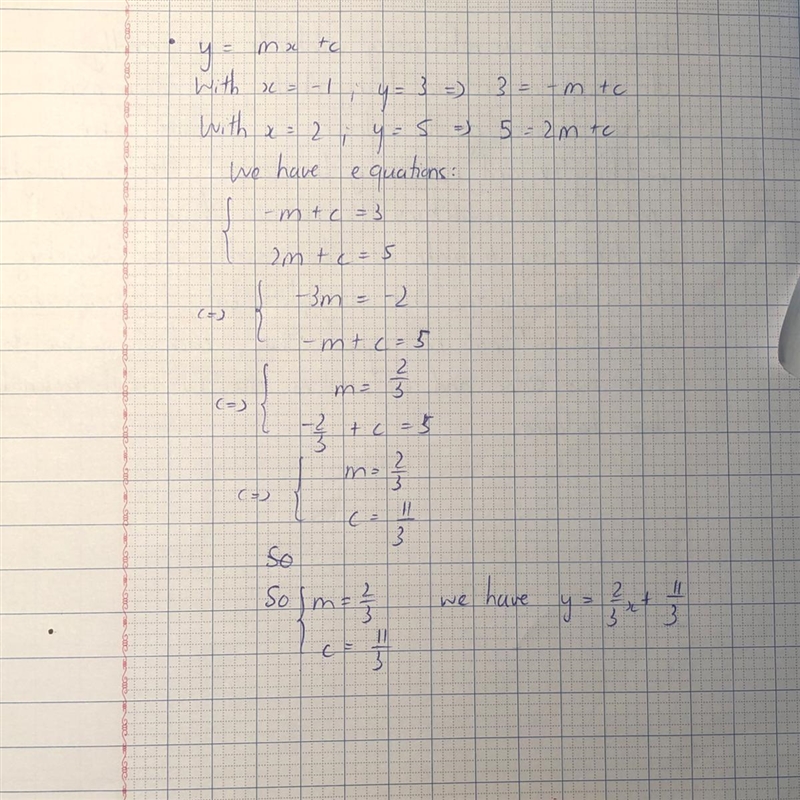 • y = mx + c
With x = -1 ; y = 3 => 3 = -m + c
With x = 2 ; y = 5 => 5 = 2m + c
We have equations:
{ -m + c = 3
2m + c = 5
<=> { -3m = -2
-m + c = 5
<=> { m = 2/3
-2/3 + c = 5
<=> { m = 2/3
c = 11/3
So
So { m = 2/3 we have y = 2/3 x + 11/3
c = 11/3